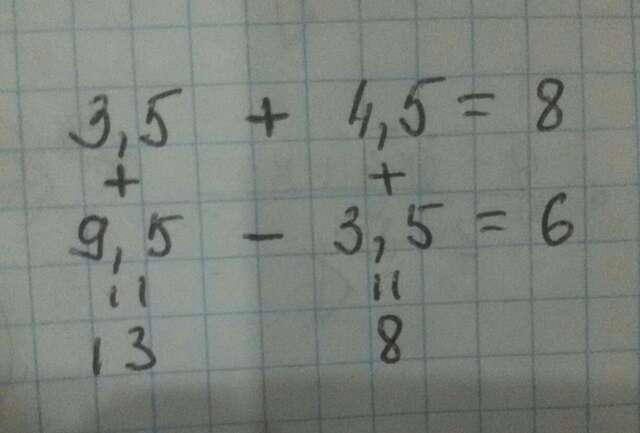 3,5 + 4,5 = 8
+ +
9,5 - 3,5 = 6
11 11
13 8